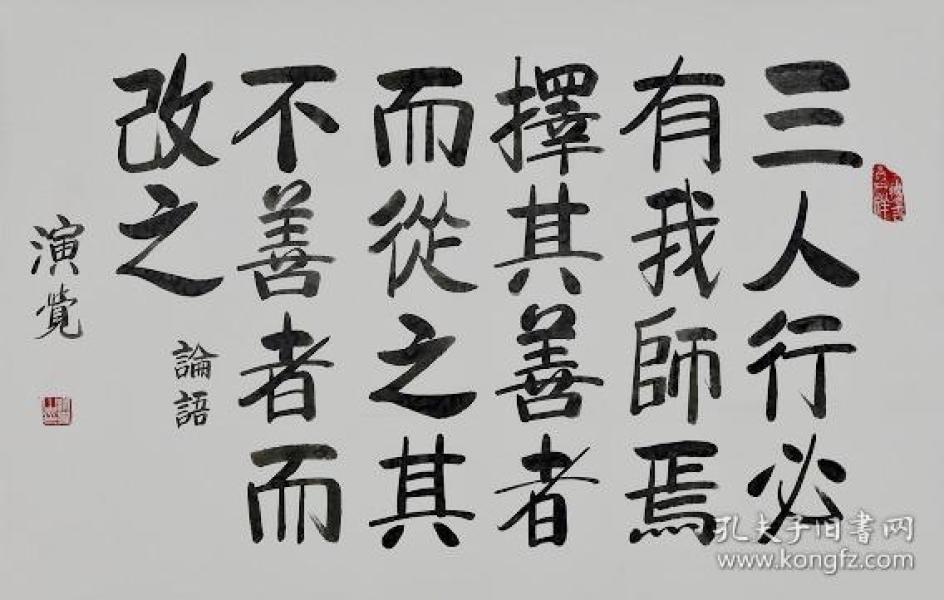 三人行必
有我師焉
擇其善者
而從之其
不善者而
改之
論語
演覺
孔夫子旧書网
www.kongfz.com